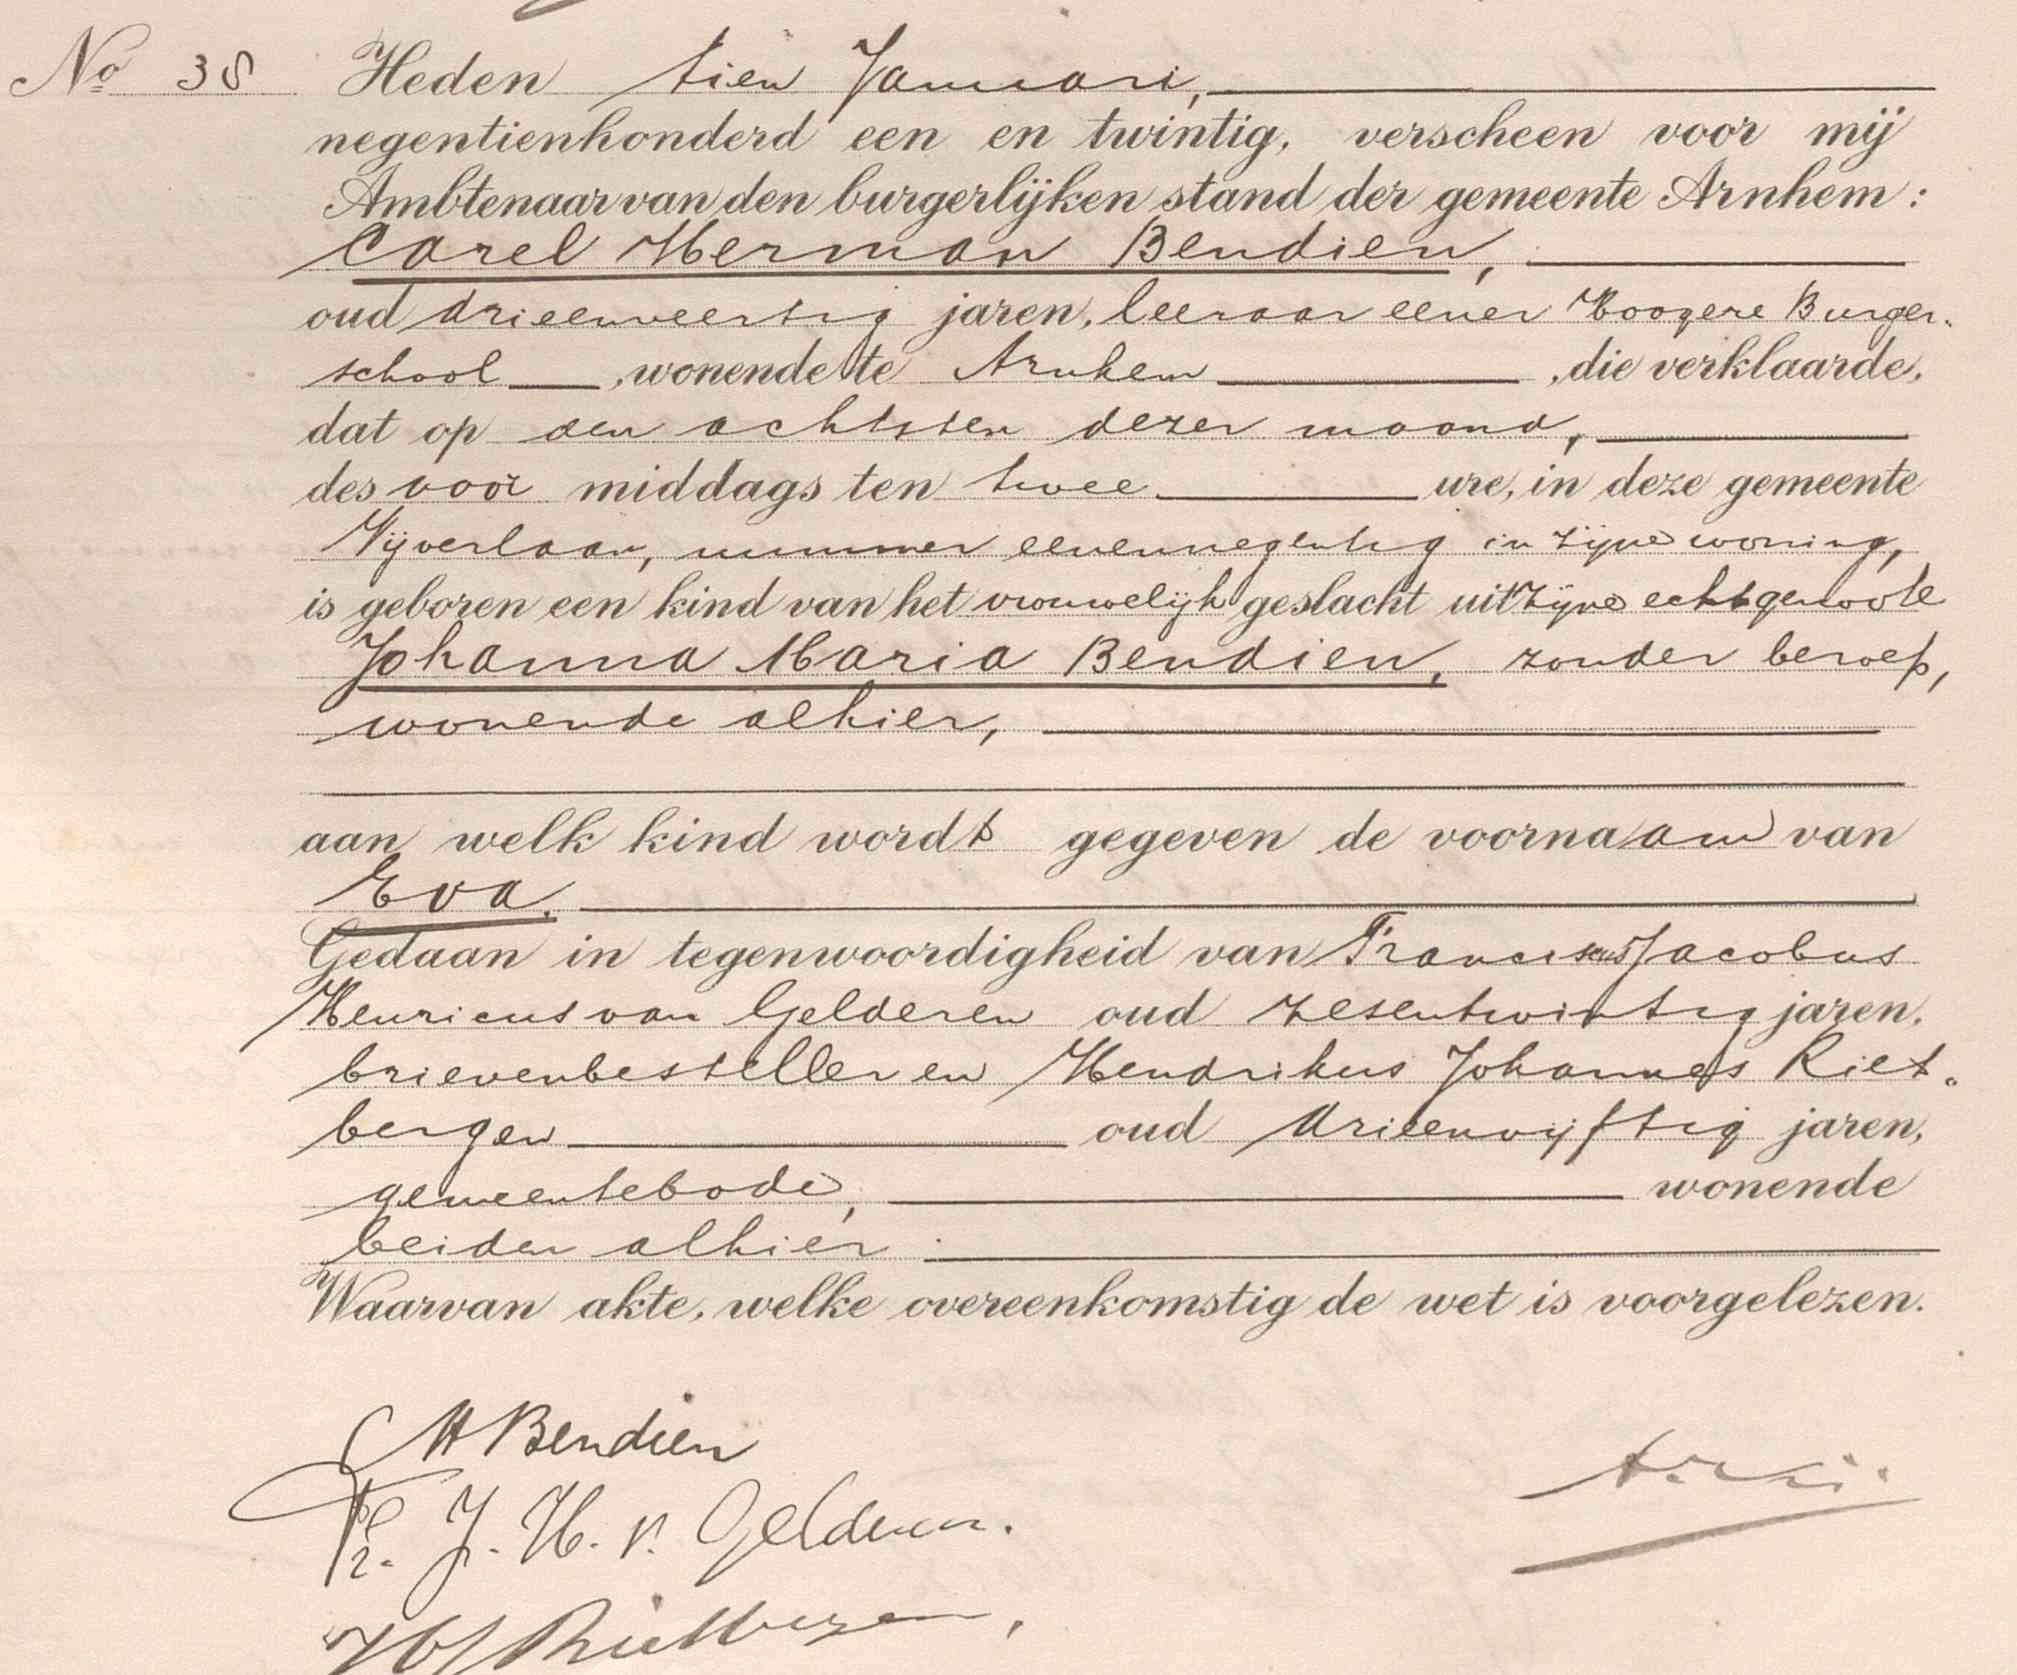 No 38 Heden tien Januari,
negentienhonderd een en twintig, verscheen voor mij
Ambtenaar van den burgerlijken stand der gemeente Arnhem:
Carel Herman Bendien,
oud drieenveertig jaren, leeraar eener Hoogere Burger-
school, wonende te Arnhem, die verklaarde,
dat op den achtsten dezer maand,
des voor middags ten twee ure, in deze gemeente
Vijverlaan, nummer eenennegentig in zijne woning,
is geboren een kind van het vrouwelijk geslacht uit zijne echtgenoote
Johanna Maria Bendien, zonder beroep,
wonende alhier,
aan welk kind wordt gegeven de voornaam van
Eva.
Gedaan in tegenwoordigheid van Franciscus Jacobus
Henricus van Gelderen oud zesentwintig jaren,
brievenbesteller en Hendrikus Johannes Riet-
bergen oud drieenvijftig jaren,
gemeentebode, wonende
beiden alhier.
Waarvan akte, welke overeenkomstig de wet is voorgelezen.
CH Bendien
Fr. J. H. v. Gelderen.
HJ Rietbergen,